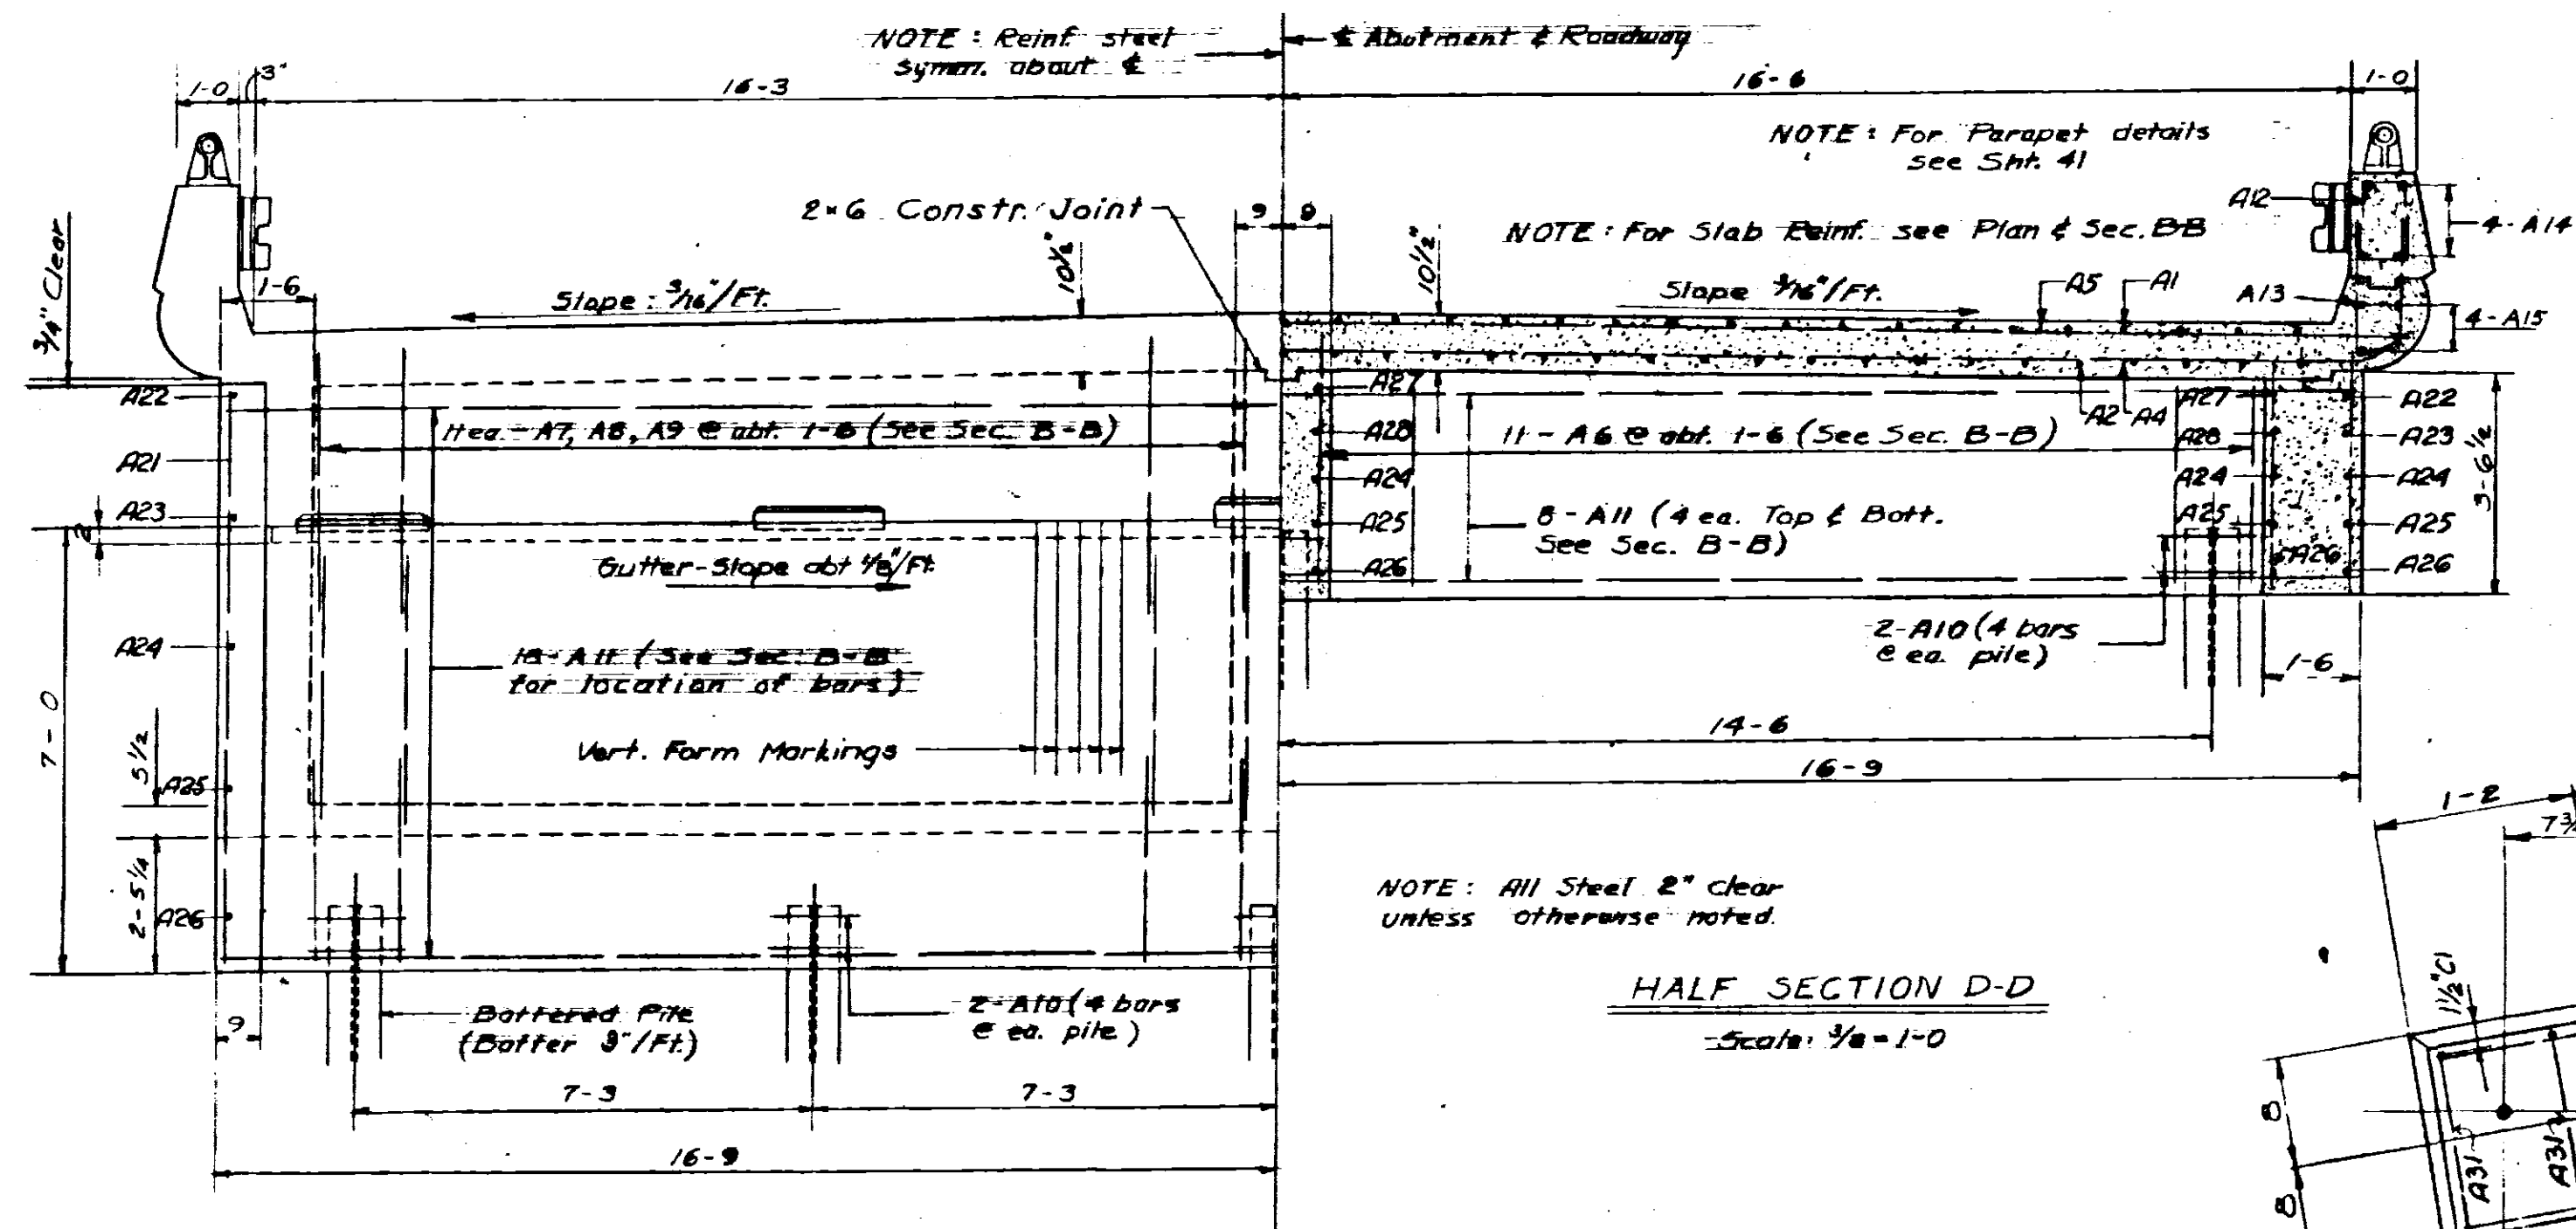 NOTE : Reinf. steel
symm. about ℄
℄ Abutment & Roadway
1-0
3"
16-3
16-6
1-0
NOTE : For Parapet details
see Sht. 41
2×6 Constr. Joint
9
9
A12
4-A14
NOTE : For Slab Reinf. see Plan & Sec. B-B
3/4" Clear
1-6
Slope : 3/16"/Ft.
10½"
10½"
Slope 3/16"/Ft.
A5
A1
A13
4-A15
A22
A27
A2
A4
A27
A22
11 ea. - A7, A8, A9 @ abt. 1-6 (See Sec. B-B)
A28
11 - A6 @ abt. 1-6 (See Sec. B-B)
A28
A23
A21
A24
A24
A24
3-6½
A23
2
A25
8 - A11 (4 ea. Top & Bott.
See Sec. B-B)
A25
A25
Gutter-Slope abt 1/8"/Ft.
A26
A26
A26
A24
18 - A11 (See Sec. B-B
for location of bars)
2-A10 (4 bars
@ ea. pile)
1-6
7-0
14-6
Vert. Form Markings
5½
16-9
A25
1-2
2-5¼
A26
NOTE : All Steel 2" clear
unless otherwise noted.
1½"Cl
HALF SECTION D-D
Scale: 3/8 = 1-0
9
Battered Pile
(Batter 3"/Ft.)
2-A10 (4 bars
@ ea. pile)
7-3
7-3
B
B
A31
A31
16-9